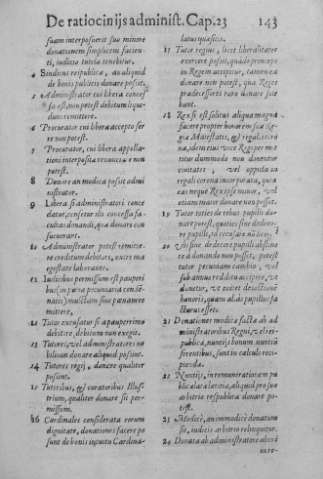 De ratiocinijs administ. Cap.23 143
suam interposuerit suo minore
donationem simplicem facien-
ti, iudicio tutela tenebitur.
4 Sindicus reipublica, an aliquid
de bonis publicis donare possit.
5 Administrator cui libera concef
sa est, non potest debitum liqui-
dum remittere.
6 Procurator cui libera accepto fer
re non potest.
7 Procurator, cui libera appella-
tioni interposita renunciare non
potest.
8 Donare an modica possit admi
nistrator.
9 Libera si administratori conce
datur, censetur illi concessa fa-
cultas donandi, qua donare con
sueuerunt.
10 Administrator potest remitte-
re creditum debitori, extre ma
egestate laboranti.
11 Iudicibus permissum est pauperi
bus (in poena pecuniaria cen-
) mulctam siue poenam re
mittere,
12 Tutor excusatur si a pauperrimo
debitore, debitum non exegit.
13 Tutores, vel administratores no
bilium donare aliquid possint.
14 Tutores regij, donare qualiter
possint.
15 Tutoribus, & curatoribus Illus-
trium, qualiter donare sit per-
missum.
16 Cardinales considerata eorum
dignitate, donationes facere po
sunt de bonis Cardina-
latus
17 Tutor regius, licet liberaliter
exercere possit, quàdo pro
in Regem acceptum, tamen ea
donare non potest, qua Rex
praedecessor raro donare sole
bant.
18 Rex si est solitus aliqua magna
facere propter honorem sua Re-
gia Maiestatis, & regali corona
, idem eius vice Regi permit
titur dummodo non donetur
ciuitates, vel oppida
regali corona incorporata, quia
eas neque Rex ipse minor, vel
etiam maior donare non possit.
19 Tutor toties de rebus pupilli do-
nare potest, quoties sine dedeco-
re pupilli, id recusare non
20 Vbi sine dedecore pupilli abstine
re à donando non posset, potest
tutor pecuniam cambio, vel
sub annuo redditu accipere, vt
donetur, ne euitet deiectione
honoris, quam alias pupillus pa
ssurus esset.
21 Donationes modica facta ab ad
ministratoribus Regni, vel rei-
publica, nuntijs bonum nuntiū
ferentibus, sunt in calculo reci-
pienda.
22 Nuntijs, in remunerationem pu
blica latitia, aliquid pro suo
arbitrio respublica donare po-
test.
23 Modicè, an immodicè donatum
sit, iudicis arbitrio relinquitur.
24 Donata ab administratore alteri